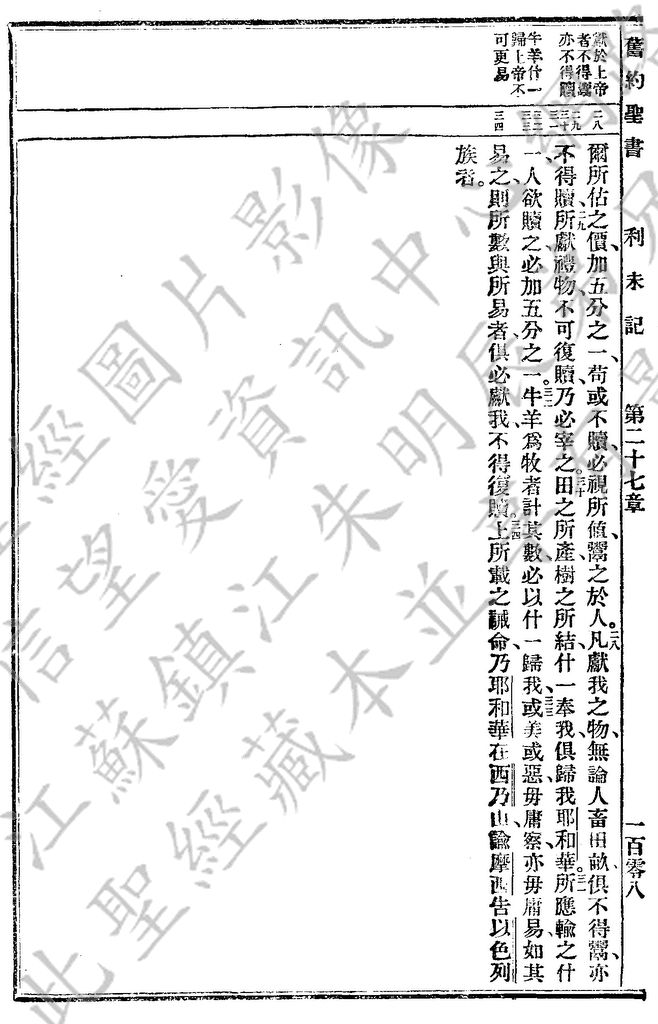 舊約聖書 利未記 第二十七章 一百零八
獻於上帝
者不得鬻
亦不得贖
牛羊什一
歸上帝不
可更易
二八
二九
三十
三一
三二
三三
三四
爾所估之價、加五分之一、苟或不贖、必視所值、鬻之於人。二八凡獻我之物、無論人畜田畝、俱不得鬻、亦
不得贖、二九所獻禮物、不可復贖、乃必宰之。三十田之所產、樹之所結、什一奉我、俱歸我耶和華。三一所應輸之什
一、人欲贖之、必加五分之一。三二牛羊為牧者計其數、必以什一歸我、三三或美或惡、毋庸察、亦毋庸易、如其
易之、則所數與所易者、俱必獻我、不得復贖。三四上所載之誡命、乃耶和華在西乃山、諭摩西告以色列
族者。
聖經圖片影像
信望愛資訊中心網絡
江蘇鎮江朱明辰弟兄
此聖經藏本並